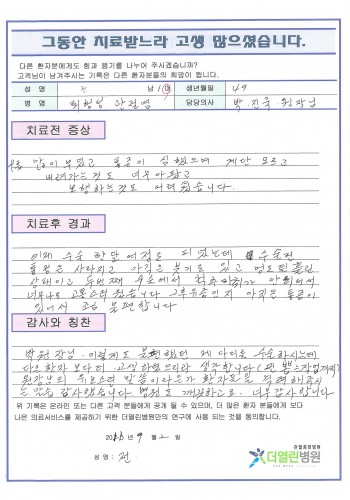 그동안 치료받느라 고생 많으셨습니다.
다른 환자분에게도 힘과 용기를 나누어 주시겠습니까?
고객님이 남겨주시는 기록은 다른 환자분들의 희망이 됩니다.
성 명 전 남 / 여 생년월일 49
병 명 퇴행성 관절염 담당의사 박진욱 원장님
치료전 증상
많이 부었고 통증이 심했으며 계단 오르고
내려가는것도 너무아팠고
보행하는것도 어려웠습니다.
치료후 경과
이제 수술 한달 여정도 되었는데 수술전
통증은 사라지고 아직은 붓기도 있고
상태이고 두번째 수술에서 척추마취가
너무나도 고통스러웠습니다 그후유증인지 아직은 통증이
있어서 조금 불편합니다
감사와 칭찬
박원장님 이렇게도 불편했던 제 다리를 수술하시는데
다른환자 보다 더 고생하셨으리라 생각합니다
원장님의 말씀이 환자분을 격려해주시
감사했습니다. 병원도 깨끗하고요. 너무감사합니다
위 기록은 온라인 또는 다른 고객 분들에게 공개 될 수 있으며, 더 많은 환자 분들에게 보다
나은 의료서비스를 제공하기 위한 더열린병원만의 연구에 사용 되는 것을 동의합니다.
2016년 9월 2일
성명 : 전
관절중점병원
더열린병원